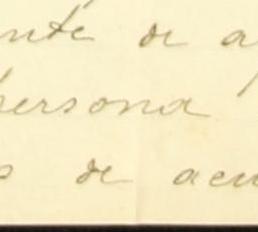 nte de a
persona
s de acu